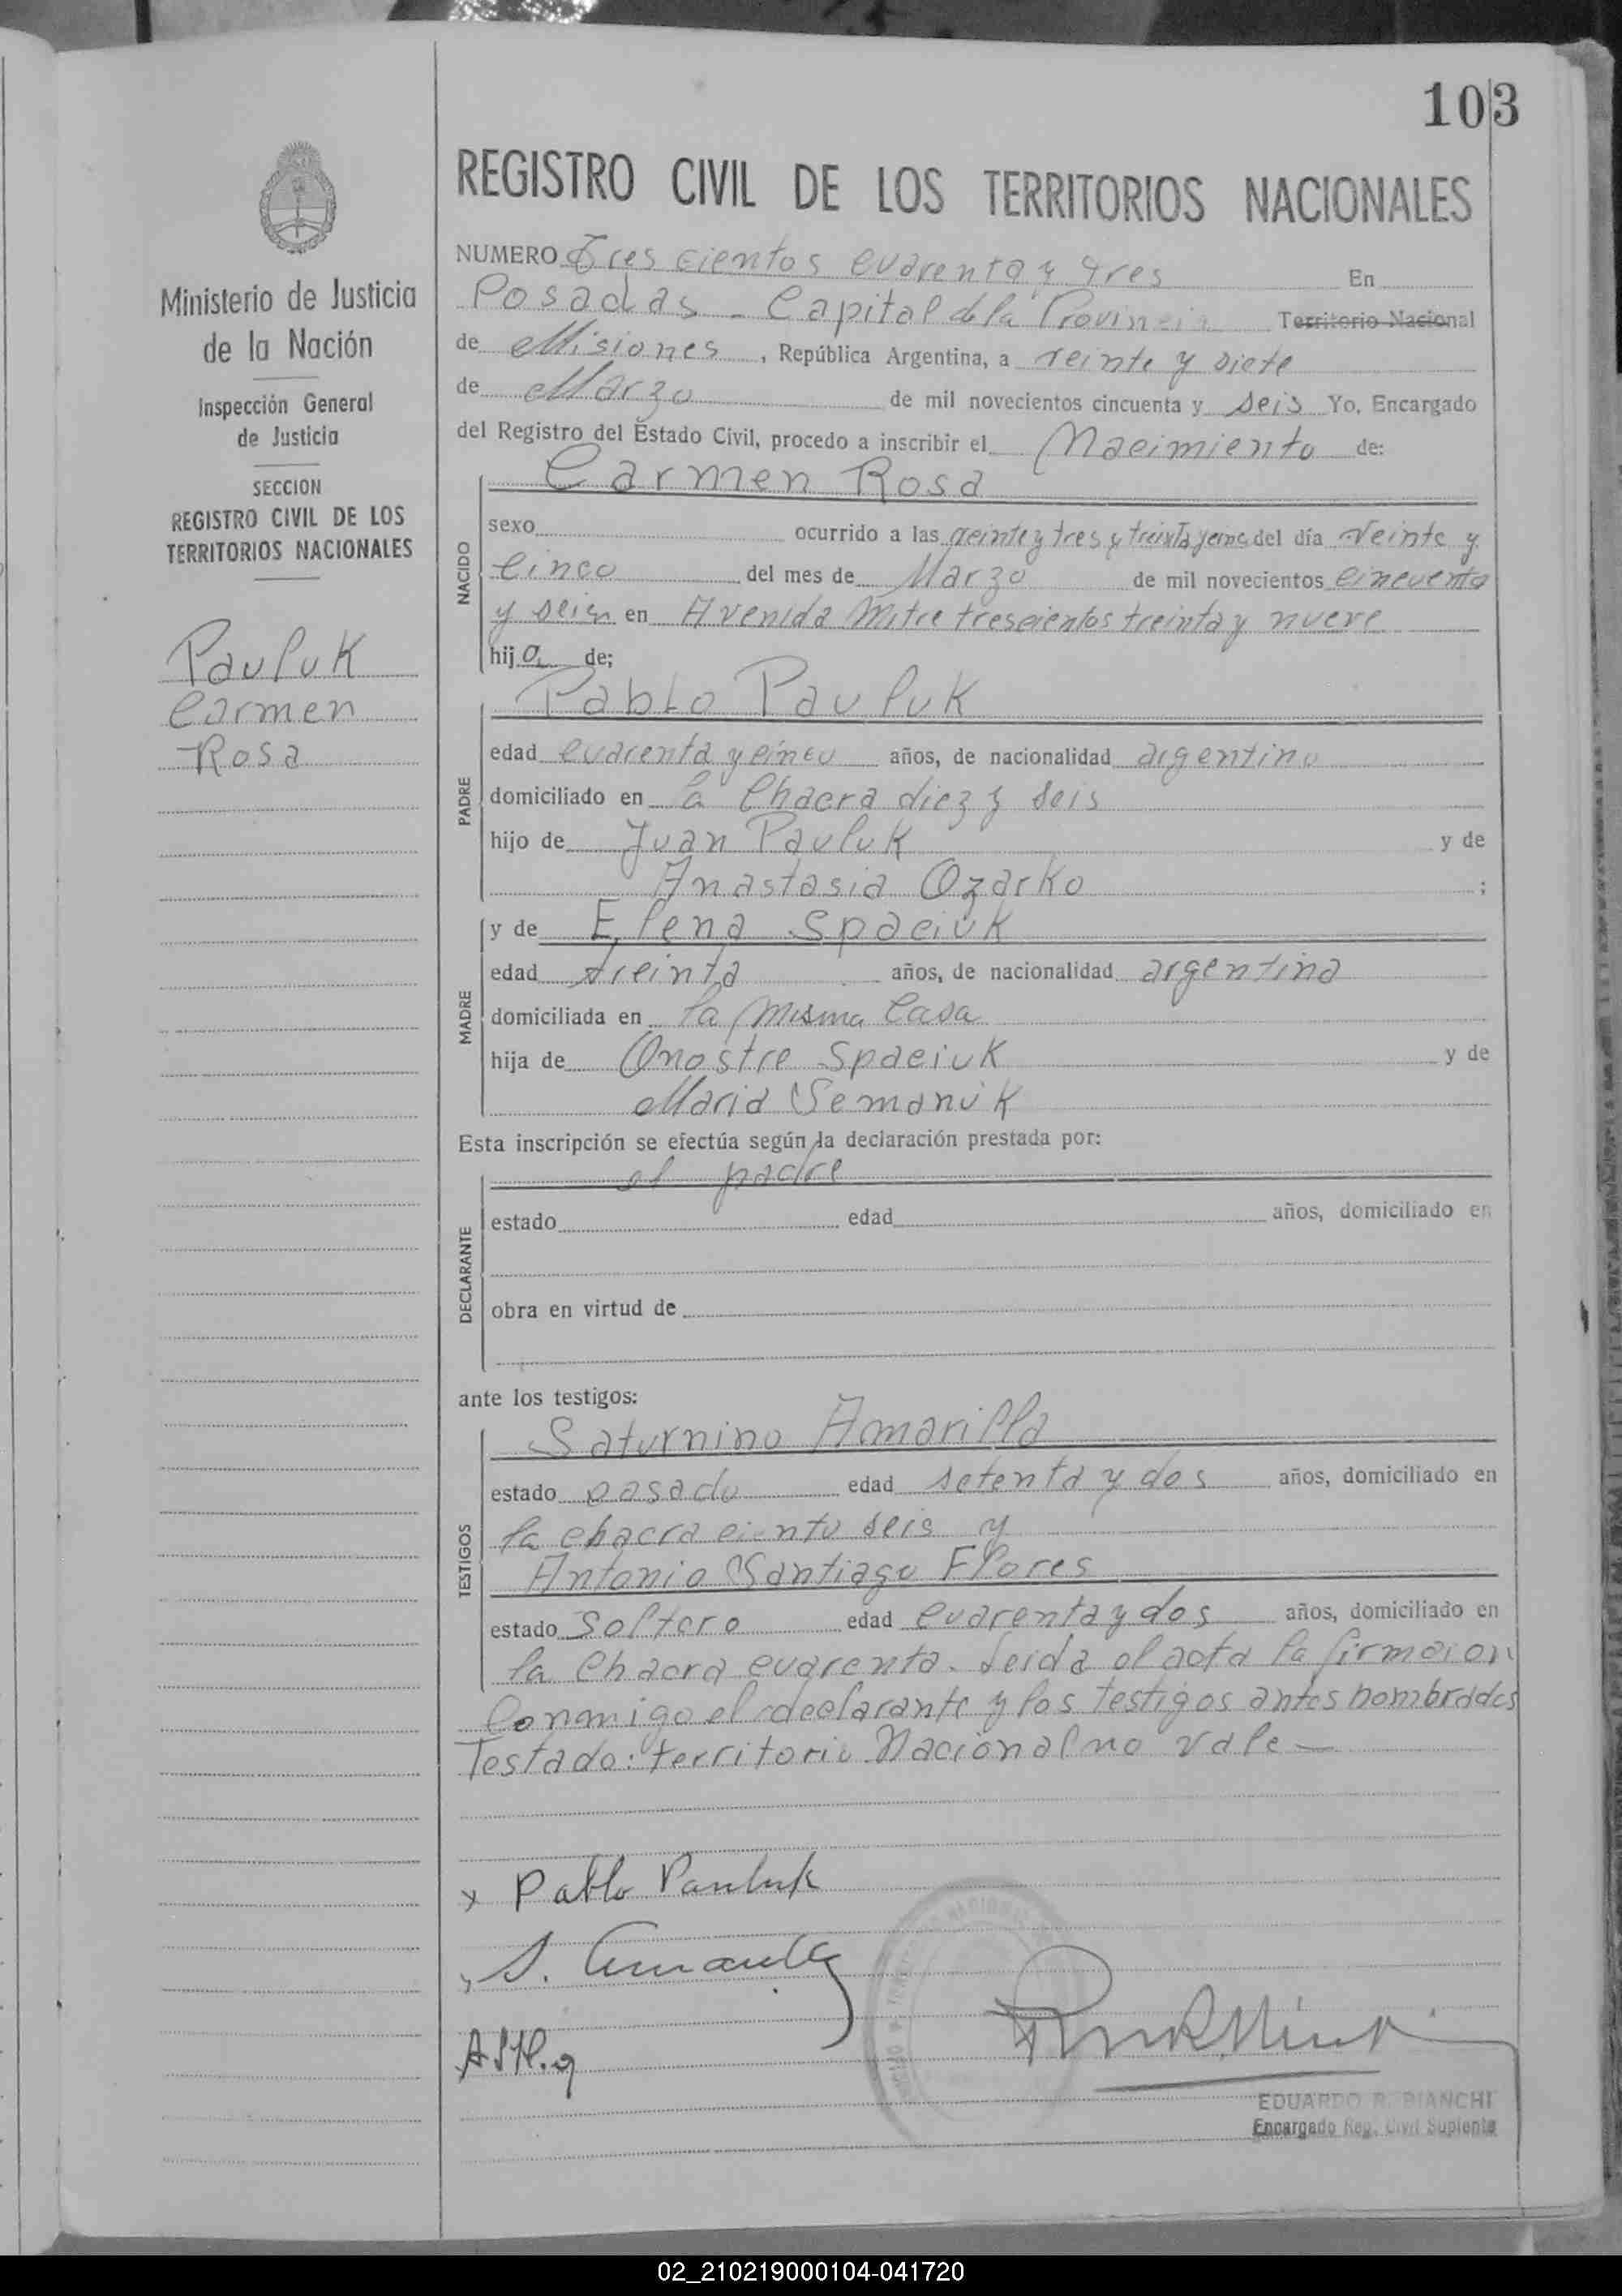 103
REGISTRO CIVIL DE LOS TERRITORIOS NACIONALES
Ministerio de Justicia
de la Nación
Inspección General
de Justicia
SECCION
REGISTRO CIVIL DE LOS
TERRITORIOS NACIONALES
Pauluk
Carmen
Rosa
NUMERO Tres cientos cuarenta y tres En
Posadas - Capital de la Provincia Territorio Nacional
de Misiones, República Argentina, a veinte y siete
de Marzo de mil novecientos cincuenta y seis Yo, Encargado
del Registro del Estado Civil, procedo a inscribir el Nacimiento de:
NACIDO
Carmen Rosa
sexo ocurrido a las veinte y tres y treinta del día Veinte y
cinco del mes de Marzo de mil novecientos cincuenta
y seis en Avenida Mitre trescientos treinta y nueve
hija de;
PADRE
Pablo Pauluk
edad cuarenta y cinco años, de nacionalidad argentino
domiciliado en la Chacra diez y seis
hijo de Juan Pauluk y de
Anastasia Ozarko ;
MADRE
y de Elena Spaciuk
edad treinta años, de nacionalidad argentina
domiciliada en la misma Casa
hija de Onostre Spaciuk y de
Maria Semaniuk
Esta inscripción se efectúa según la declaración prestada por:
DECLARANTE
el padre
estado edad años, domiciliado en
obra en virtud de
ante los testigos:
TESTIGOS
Saturnino Amarilla
estado casado edad setenta y dos años, domiciliado en
la chacra ciento seis y
Antonio Santiago Flores
estado Soltero edad cuarenta y dos años, domiciliado en
la Chacra cuarenta. Leida el acta la firmaron
Conmigo el declarante y los testigos antes nombrados
Testado: territorio Nacional no vale
x Pablo Pauluk
S. Amarilla
EDUARDO R. BIANCHI
Encargado Reg. Civil Suplente
02_210219000104-041720